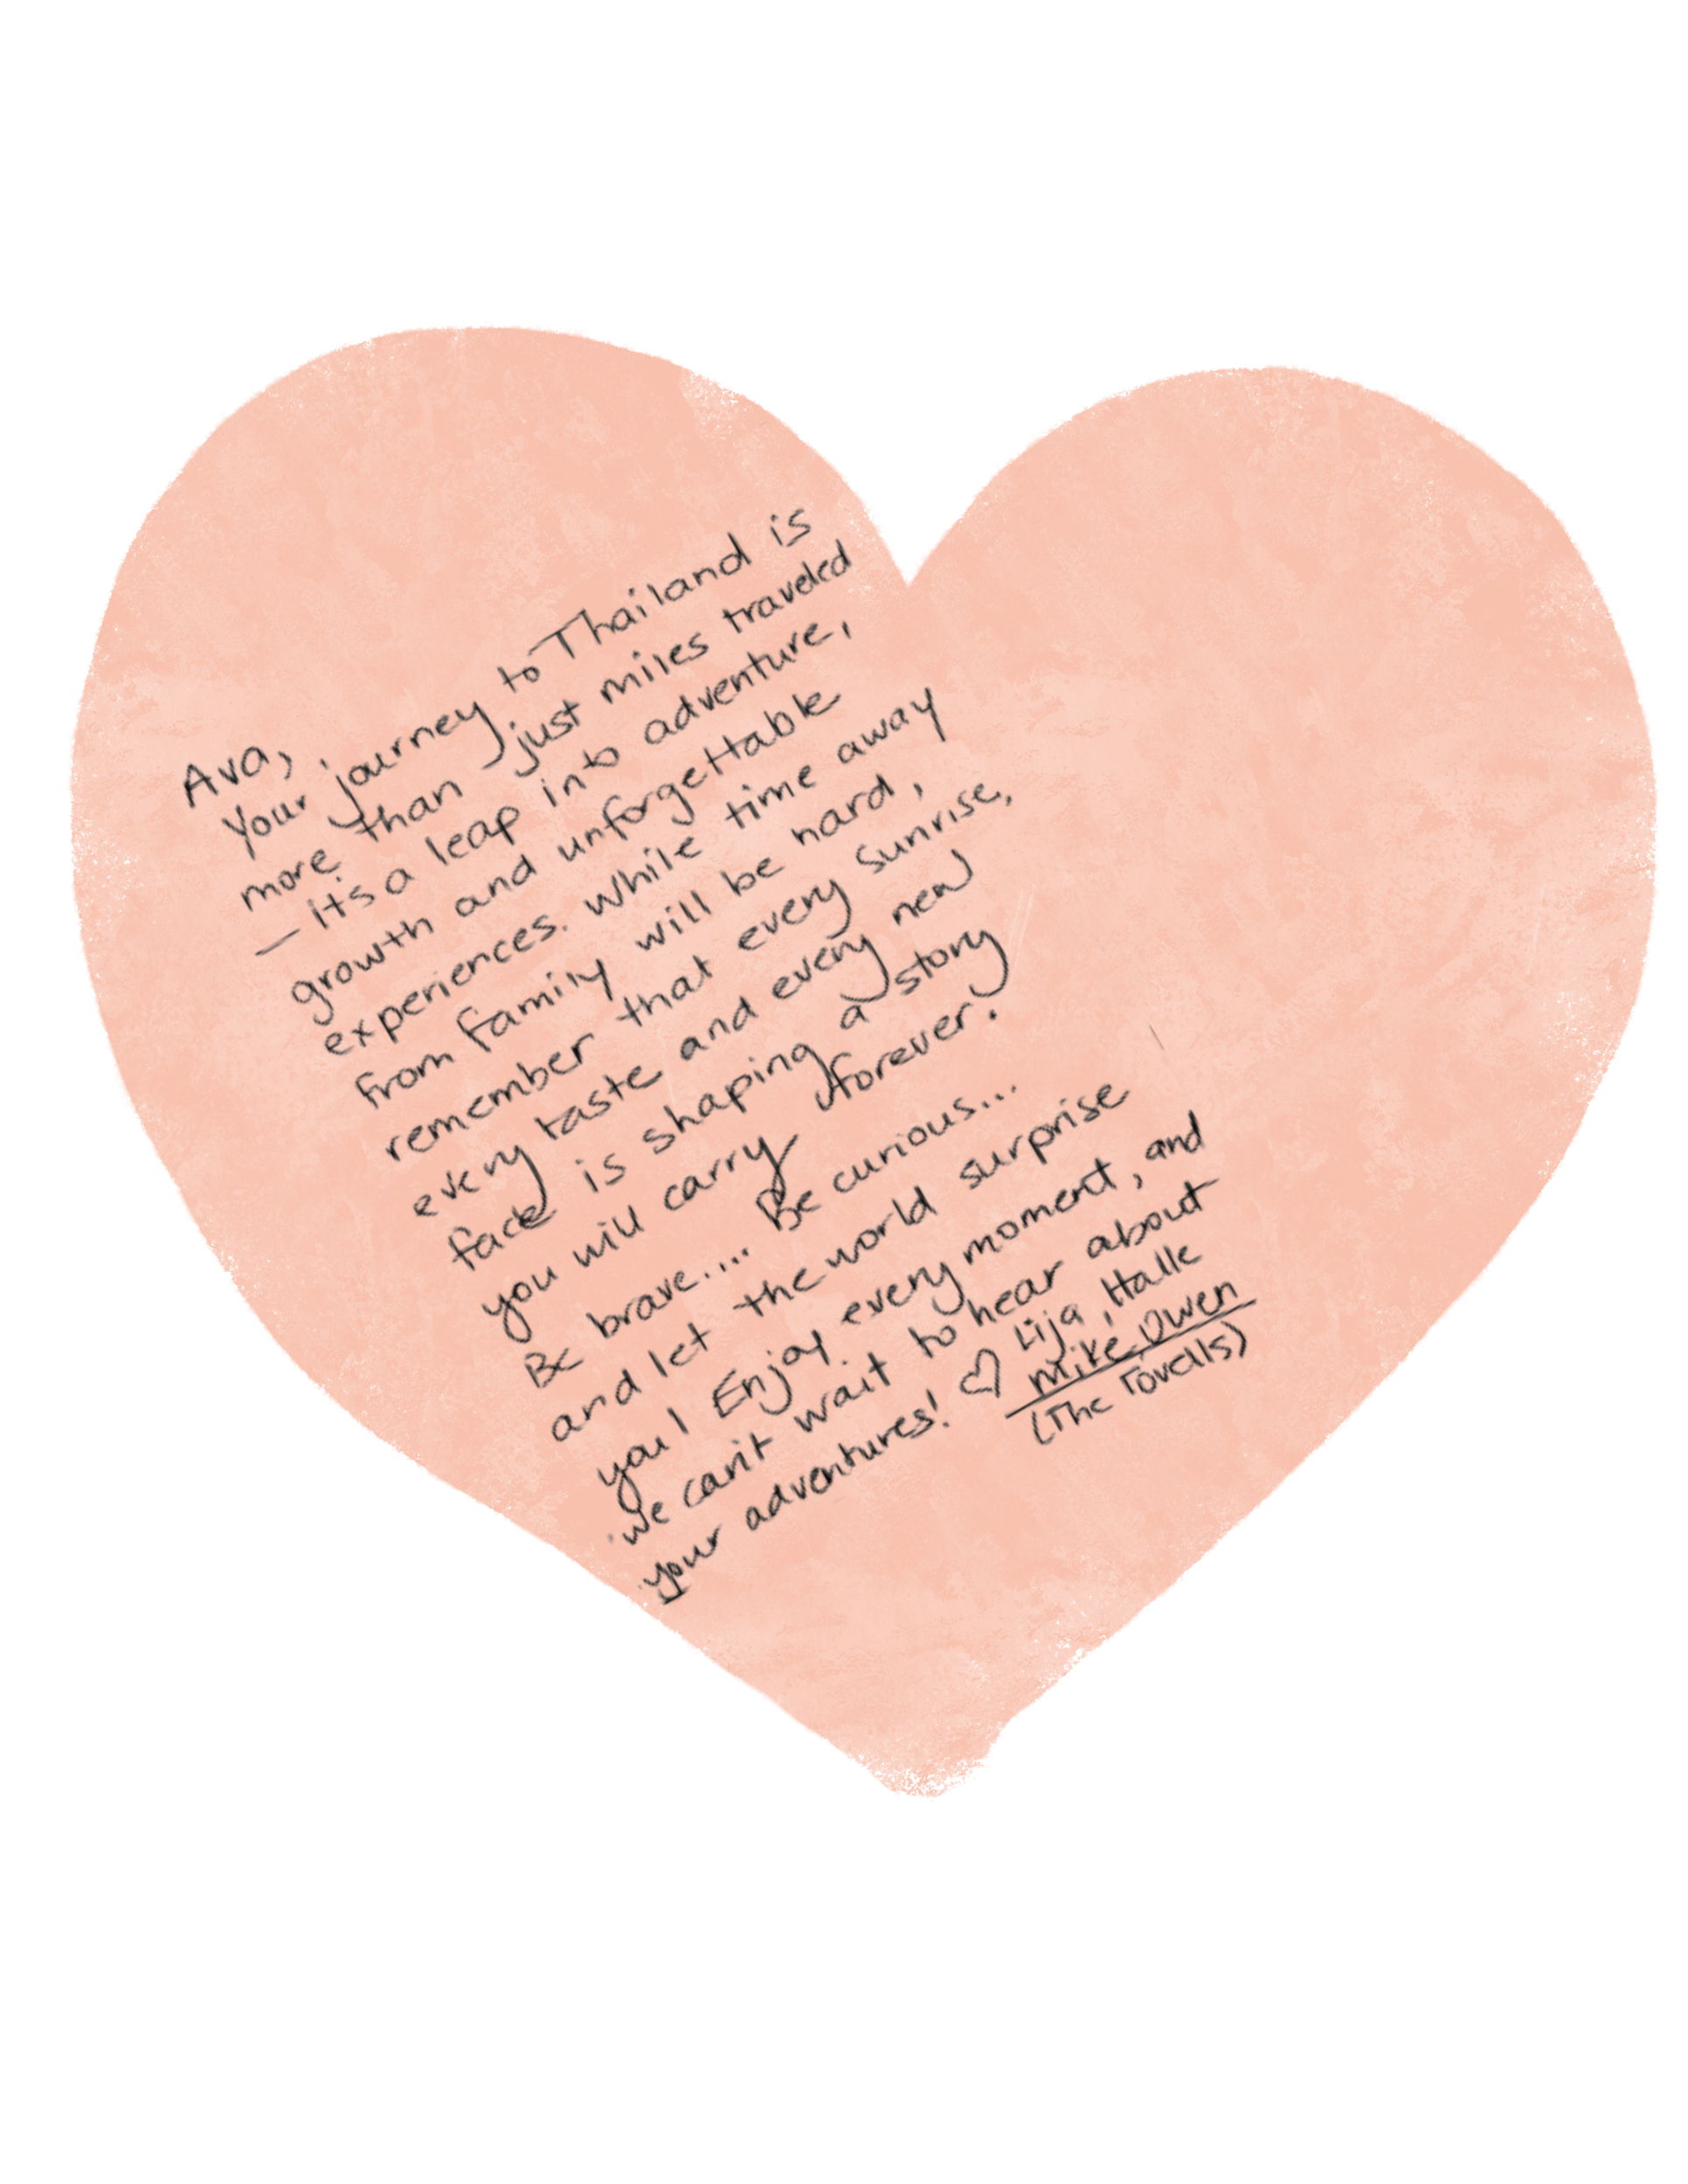 Ava,
Your journey to Thailand is
more than just miles traveled
— it's a leap into adventure,
growth and unforgettable
experiences. While time away
from family will be hard,
remember that every sunrise,
every taste and every new
face is shaping a story
you will carry forever.
Be brave.... Be curious...
and let the world surprise
you! Enjoy every moment, and
we can't wait to hear about
your adventures! ♡ Lija, Halle
Mike, Owen
(The Tovells)